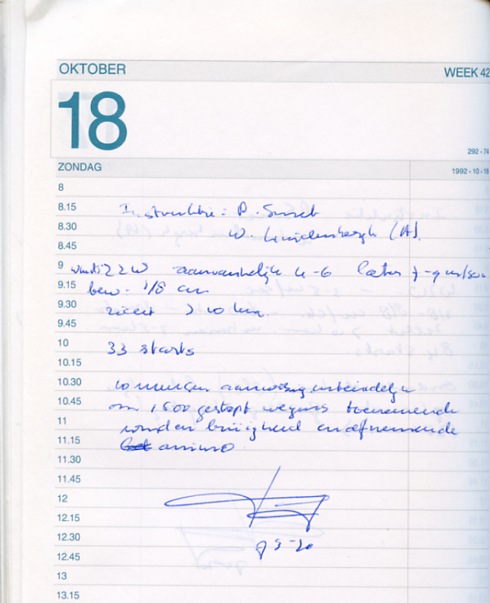 OKTOBER WEEK 42
18
292 - 74
ZONDAG 1992 - 10 - 18
8
8.15 Instruktie: P.
8.30 W. (A).
8.45
9 wind: ZZW aanvankelijk 4-6 later
9.15 bew. 1/8 cu
9.30 zicht > 10 km
9.45
10 33 starts
10.15
10.30 10 mensen aanwezig uiteindelijk
10.45 om 1500 gestopt wegens toenemende
11 wind en buiigheid en afnemende
11.15 animo
11.30
11.45
12
12.15
12.30
12.45
13
13.15